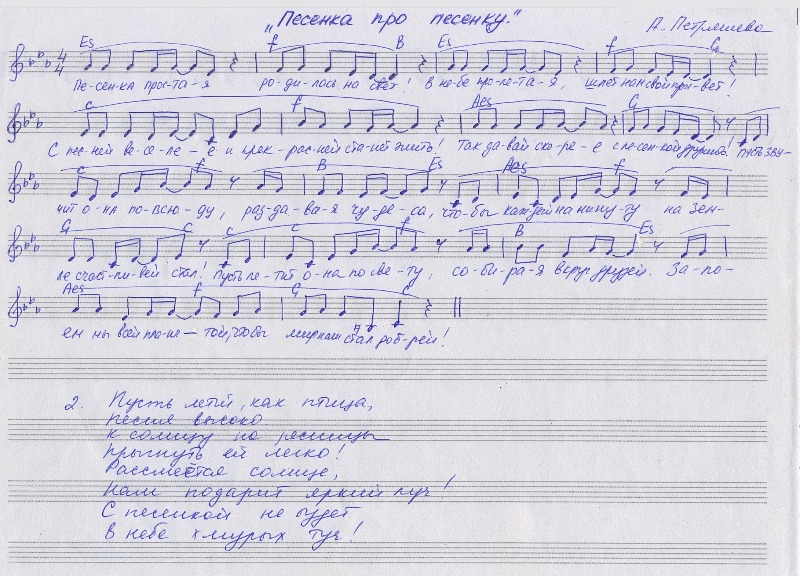 "Песенка про песенку."
А. Петряшева
Es f B Es f G
Пе-сен-ка прос-та-я ро-ди-лась на свет! В не-бе про-ле-та-я, шлет нам свой при-вет!
c f Aes G
С пес-ней ве-се-ле-е и прек-рас-ней ста-нет жить! Так да-вай ско-ре-е с пе-сен-кой дружить! Пусть зву-
c f B Es Aes f
чит о-на по-всю-ду, раз-да-ва-я чу-де-са, что-бы каж-дый на ми-ну-ту на Зем-
G C c c f B Es
ле счаст-ли-вей стал! Пусть ле-тит о-на по све-ту, со-би-ра-я вкруг друзей. За-по-
Aes f G c
ём мы всей пла-не-той, что-бы мир наш стал доб-рей!
2. Пусть летит, как птица,
песня высоко
К солнцу на ресницы
прыгнуть ей легко!
Рассмеётся солнце,
Нам подарит яркий луч!
С песенкой не будет
В небе хмурых туч!